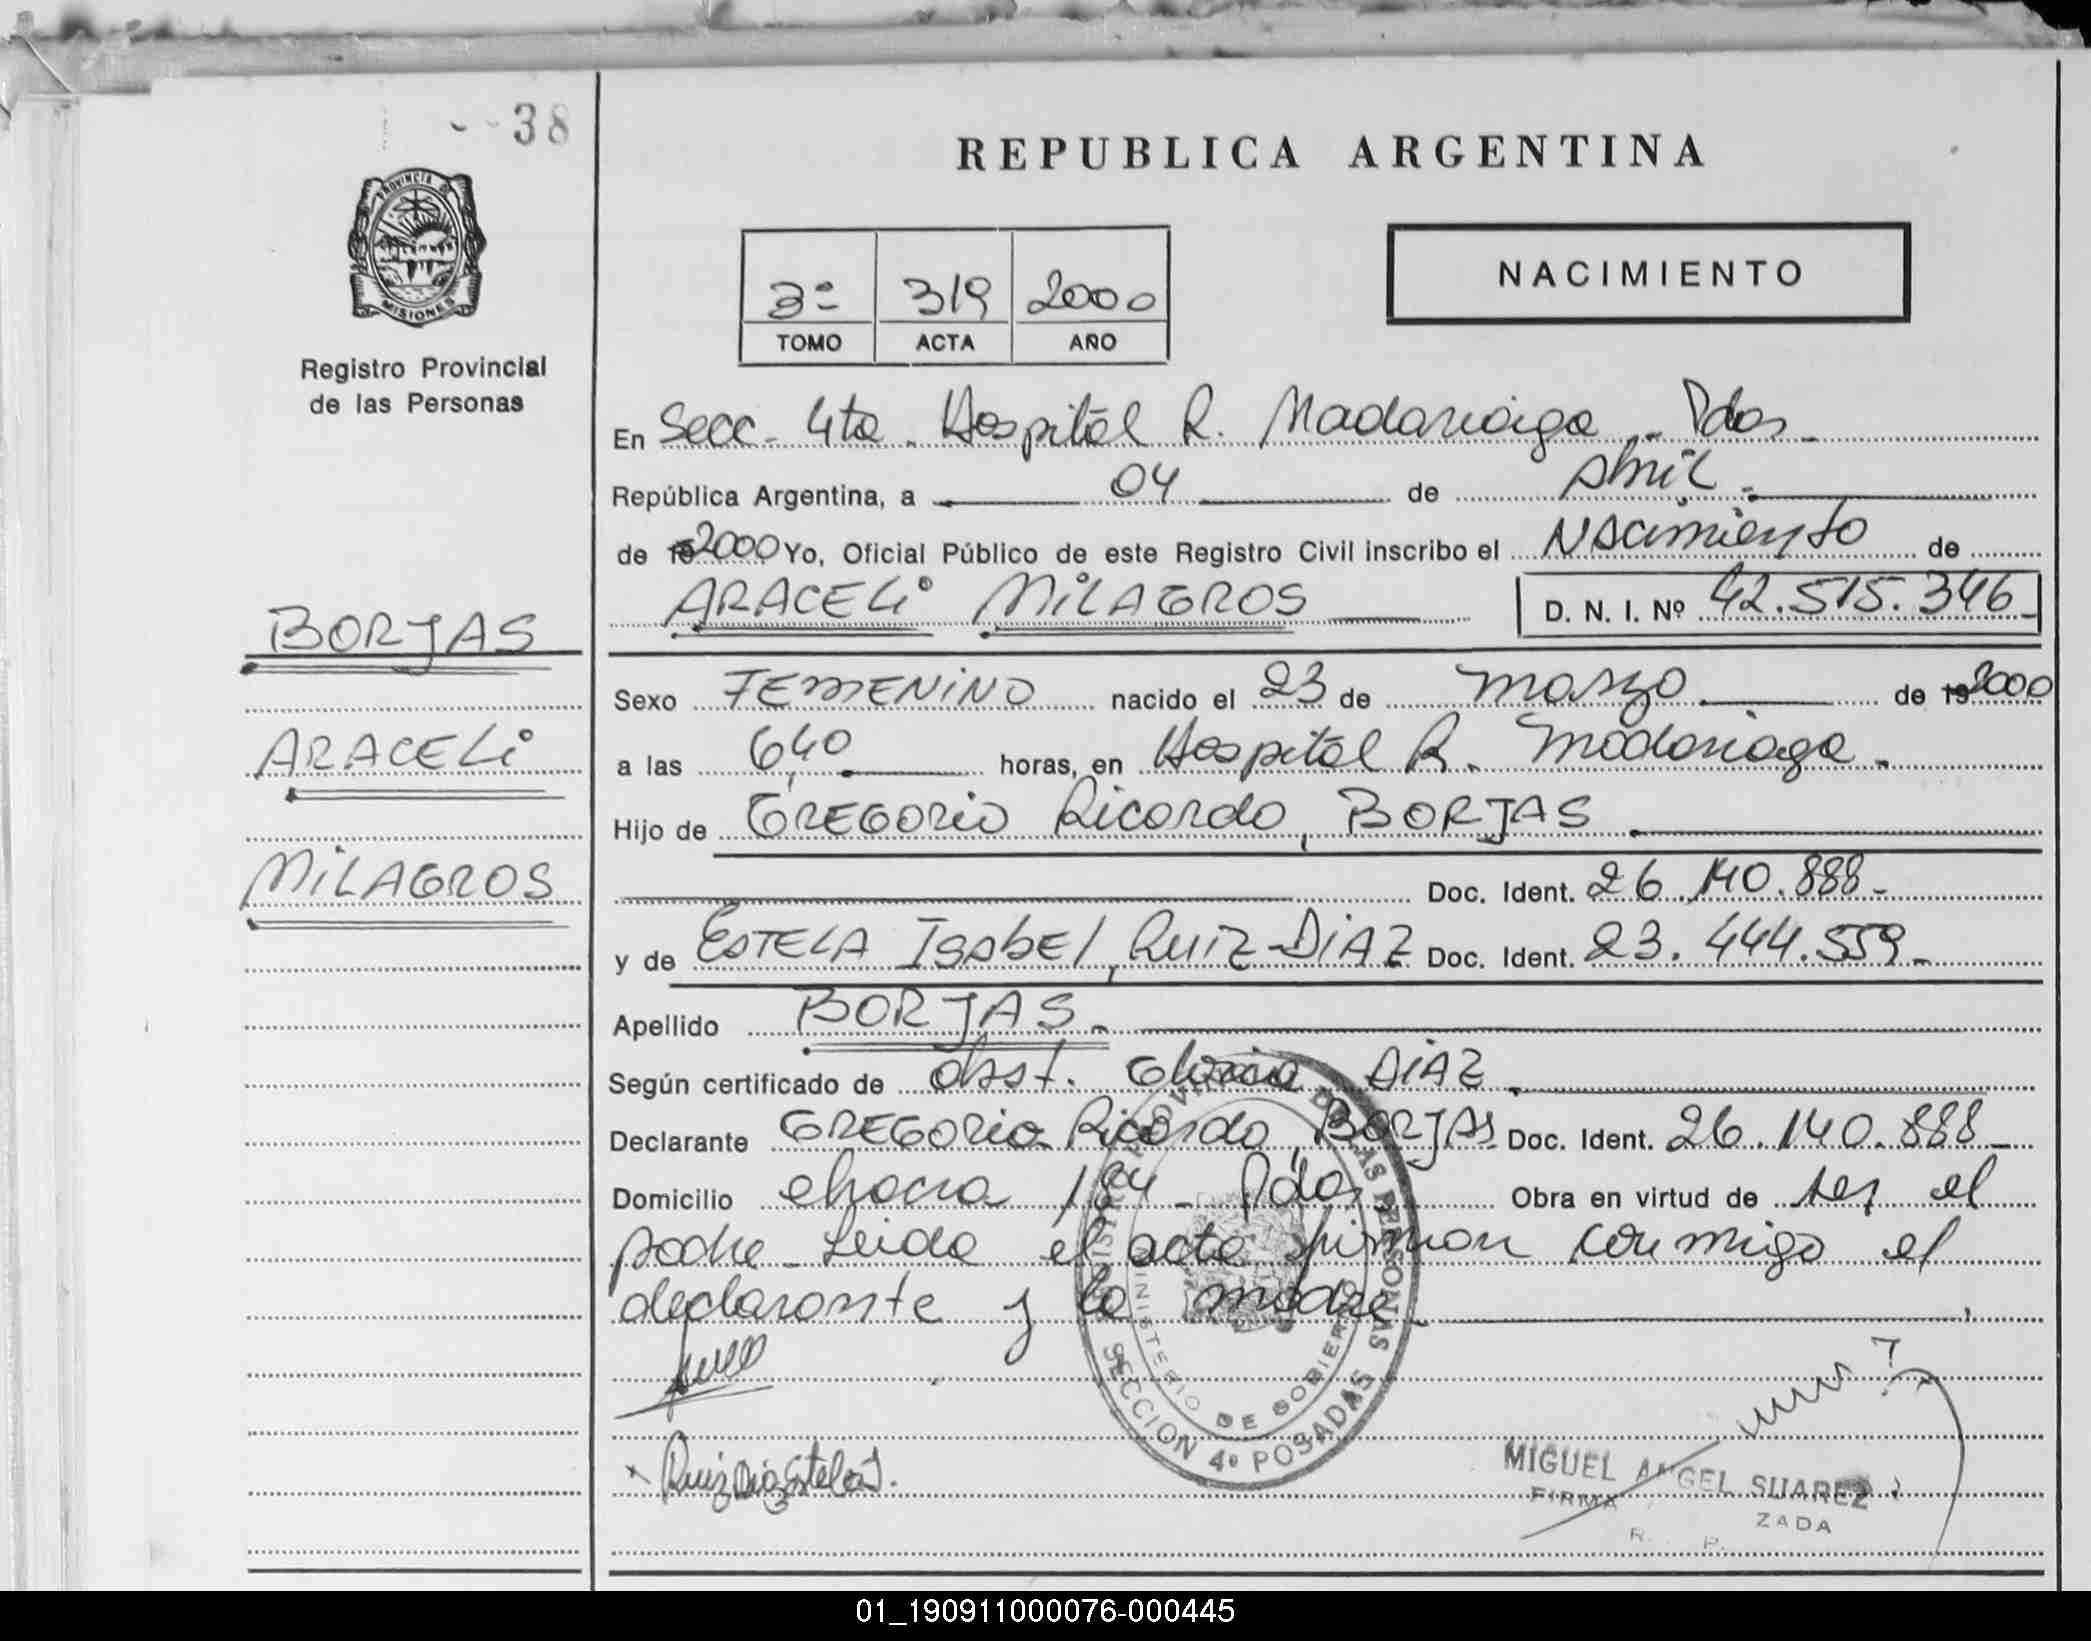 38
REPUBLICA ARGENTINA
PROVINCIA DE
MISIONES
Registro Provincial
de las Personas
3º 319 2000
TOMO ACTA AÑO
NACIMIENTO
En Secc. 4ta. Hospital R. Madariaga - Pdas.
República Argentina, a 04 de Abril
de 19 2000 Yo, Oficial Público de este Registro Civil inscribo el Nacimiento de
ARACELi MiLAGROS D. N. I. Nº 42.515.346
BORJAS
ARACELi
MiLAGROS
Sexo FEMENiNO nacido el 23 de marzo de 19 2000
a las 6,40 horas, en Hospital R. Madariaga.
Hijo de GREGORio Ricardo, BORJAS
Doc. Ident. 26.140.888-
y de ESTELA ISABEL, RUIZ-DiAZ Doc. Ident. 23.444.559-
Apellido BORJAS
Según certificado de obst. Gloria DiAZ
Declarante GREGORio Ricardo, BORJAS Doc. Ident. 26.140.888
Domicilio chacra 184 - Pdas Obra en virtud de ser el
padre - Leida el acta firman conmigo el
declarante y la madre
REGISTRO PROVINCIAL DE LAS PERSONAS
MINISTERIO DE GOBIERNO
SECCION 4º POSADAS
Ruiz Diaz Estela I.
MIGUEL ANGEL SUAREZ
FIRMA ZADA
R. P.
01_190911000076-000445